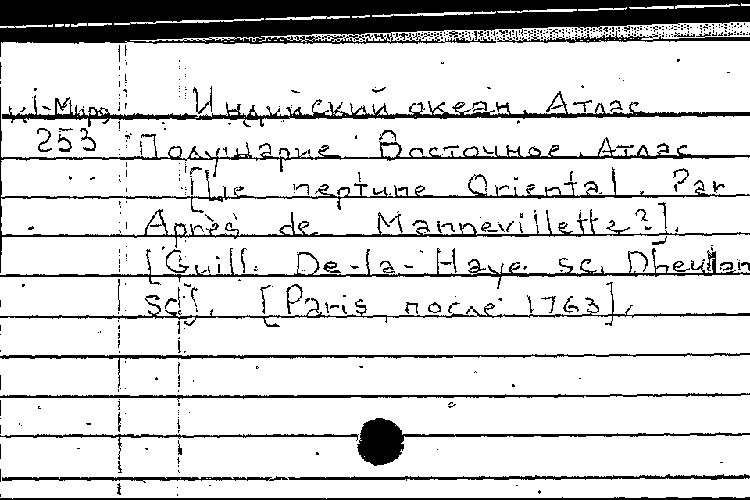 к1-Мира Индийский океан. Атлас
253 Полушарие Восточное. Атлас
[Le neptune Oriental. Par
Après de Mannevillette?].
[Guill. De-la-Haye sc. Dheulan
sc]. [Paris, после 1763].